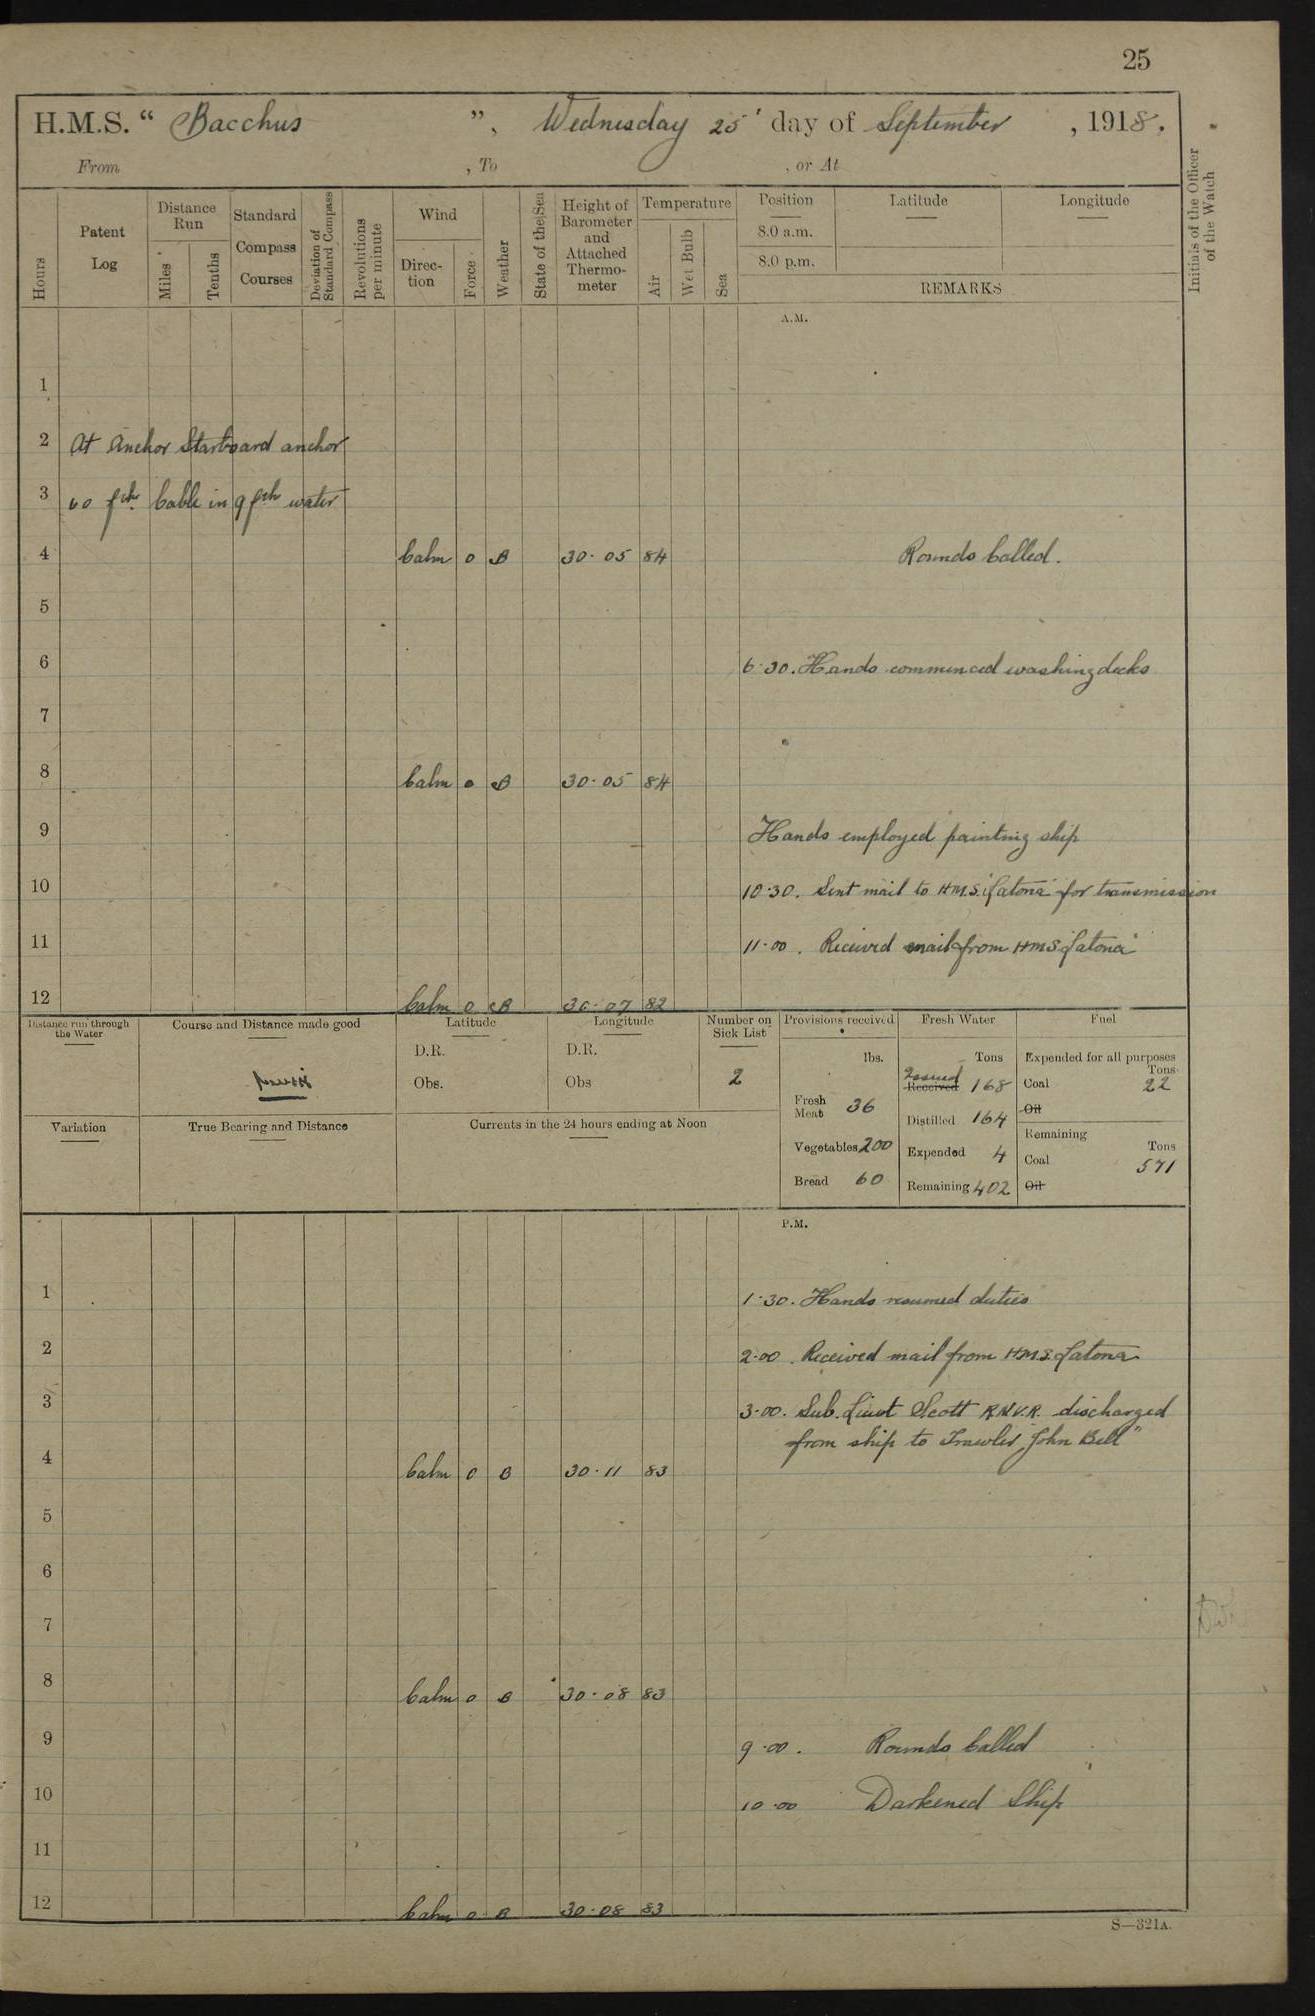 25
H.M.S. “ Bacchus ”, Wednesday 25 day of September, 1918.
From , To , or At
Hours
Patent Log
Distance Run
Miles
Tenths
Standard Compass Courses
Deviation of Standard Compass
Revolutions per minute
Wind
Direction
Force
Weather
State of the Sea
Height of Barometer and Attached Thermometer
Temperature
Air
Wet Bulb
Sea
Position
8.0 a.m.
8.0 p.m.
Latitude
Longitude
REMARKS
Initials of the Officer of the Watch
A.M.
1
2 At Anchor Starboard anchor
3 60 fth. Cable in 9 fth water
4 Calm 0 B 30·05 84 Rounds Called.
5
6 6·30. Hands commenced washing decks
7
8 Calm 0 B 30·05 84
9 Hands employed painting ship
10 10·30. Sent mail to H.M.S. "Latona" for transmission
11 11·00. Received mail from HMS "Latona"
12 Calm 0 B 30·07 82
Distance run through the Water
Course and Distance made good
Latitude
D.R.
Obs.
Longitude
D.R.
Obs
Number on Sick List
2
Provisions received
lbs.
Fresh Meat 36
Vegetables 200
Bread 60
Fresh Water
Tons
Issued
Received 168
Distilled 164
Expended 4
Remaining 402
Fuel
Expended for all purposes
Tons
Coal 22
Oil
Remaining
Tons
Coal 571
Oil
Variation
True Bearing and Distance
Currents in the 24 hours ending at Noon
P.M.
1 1·30. Hands resumed duties
2 2·00. Received mail from H.M.S. Latona
3 3·00. Sub. Lieut Scott R.N.V.R. discharged
from ship to Trawler "John Bell"
4 Calm 0 B 30·11 83
5
6
7
8 Calm 0 B 30·08 83
9 9·00. Rounds Called
10 10·00 Darkened Ship
11
12 Calm 0 B 30·08 83
S—321A.